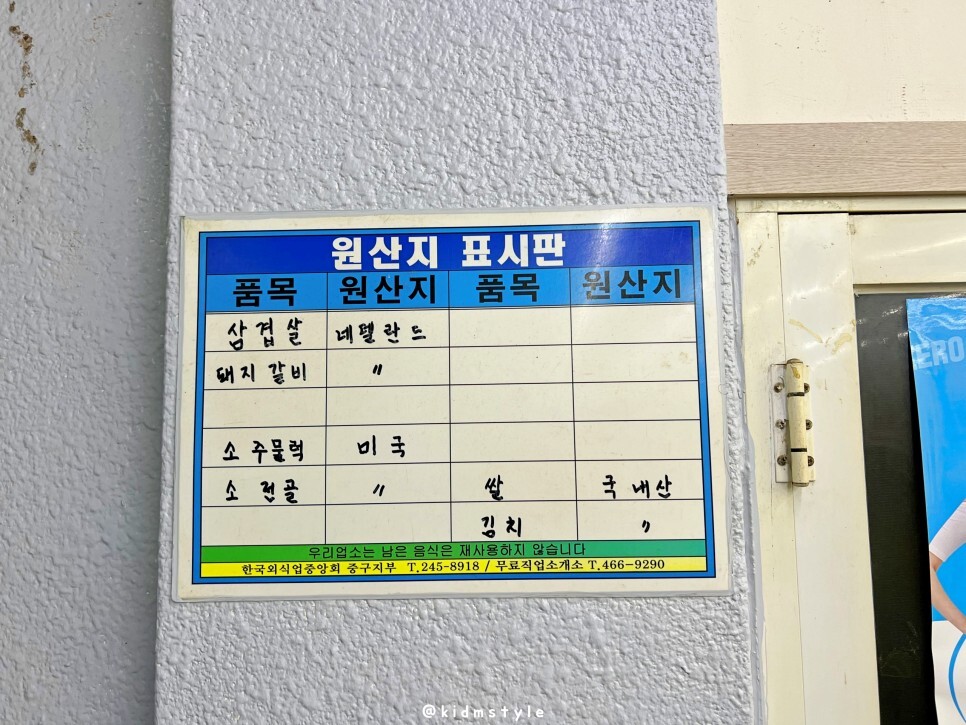 원산지 표시판
품목 원산지 품목 원산지
삼겹살 네델란드
돼지갈비 〃
소주물럭 미국
소전골 〃 쌀 국내산
김치 〃
우리업소는 남은 음식은 재사용하지 않습니다
한국외식업중앙회 중구지부 T.245-8918 / 무료직업소개소 T.466-9290
ERO
@kidmstyle